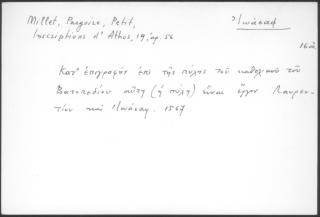 Millet, Pargoire, Petit,
Inscriptions d'Athos, 19, ἀρ. 56
Ἰωάσαφ
16 αἰ.
Κατ' ἐπιγραφὴν ἐπὶ τῆς πύλης τοῦ καθολικοῦ τοῦ
Βατοπεδίου αὕτη (ἡ πύλη) εἶναι ἔργον Λαυρεν-
τίου καὶ Ἰωάσαφ. 1567